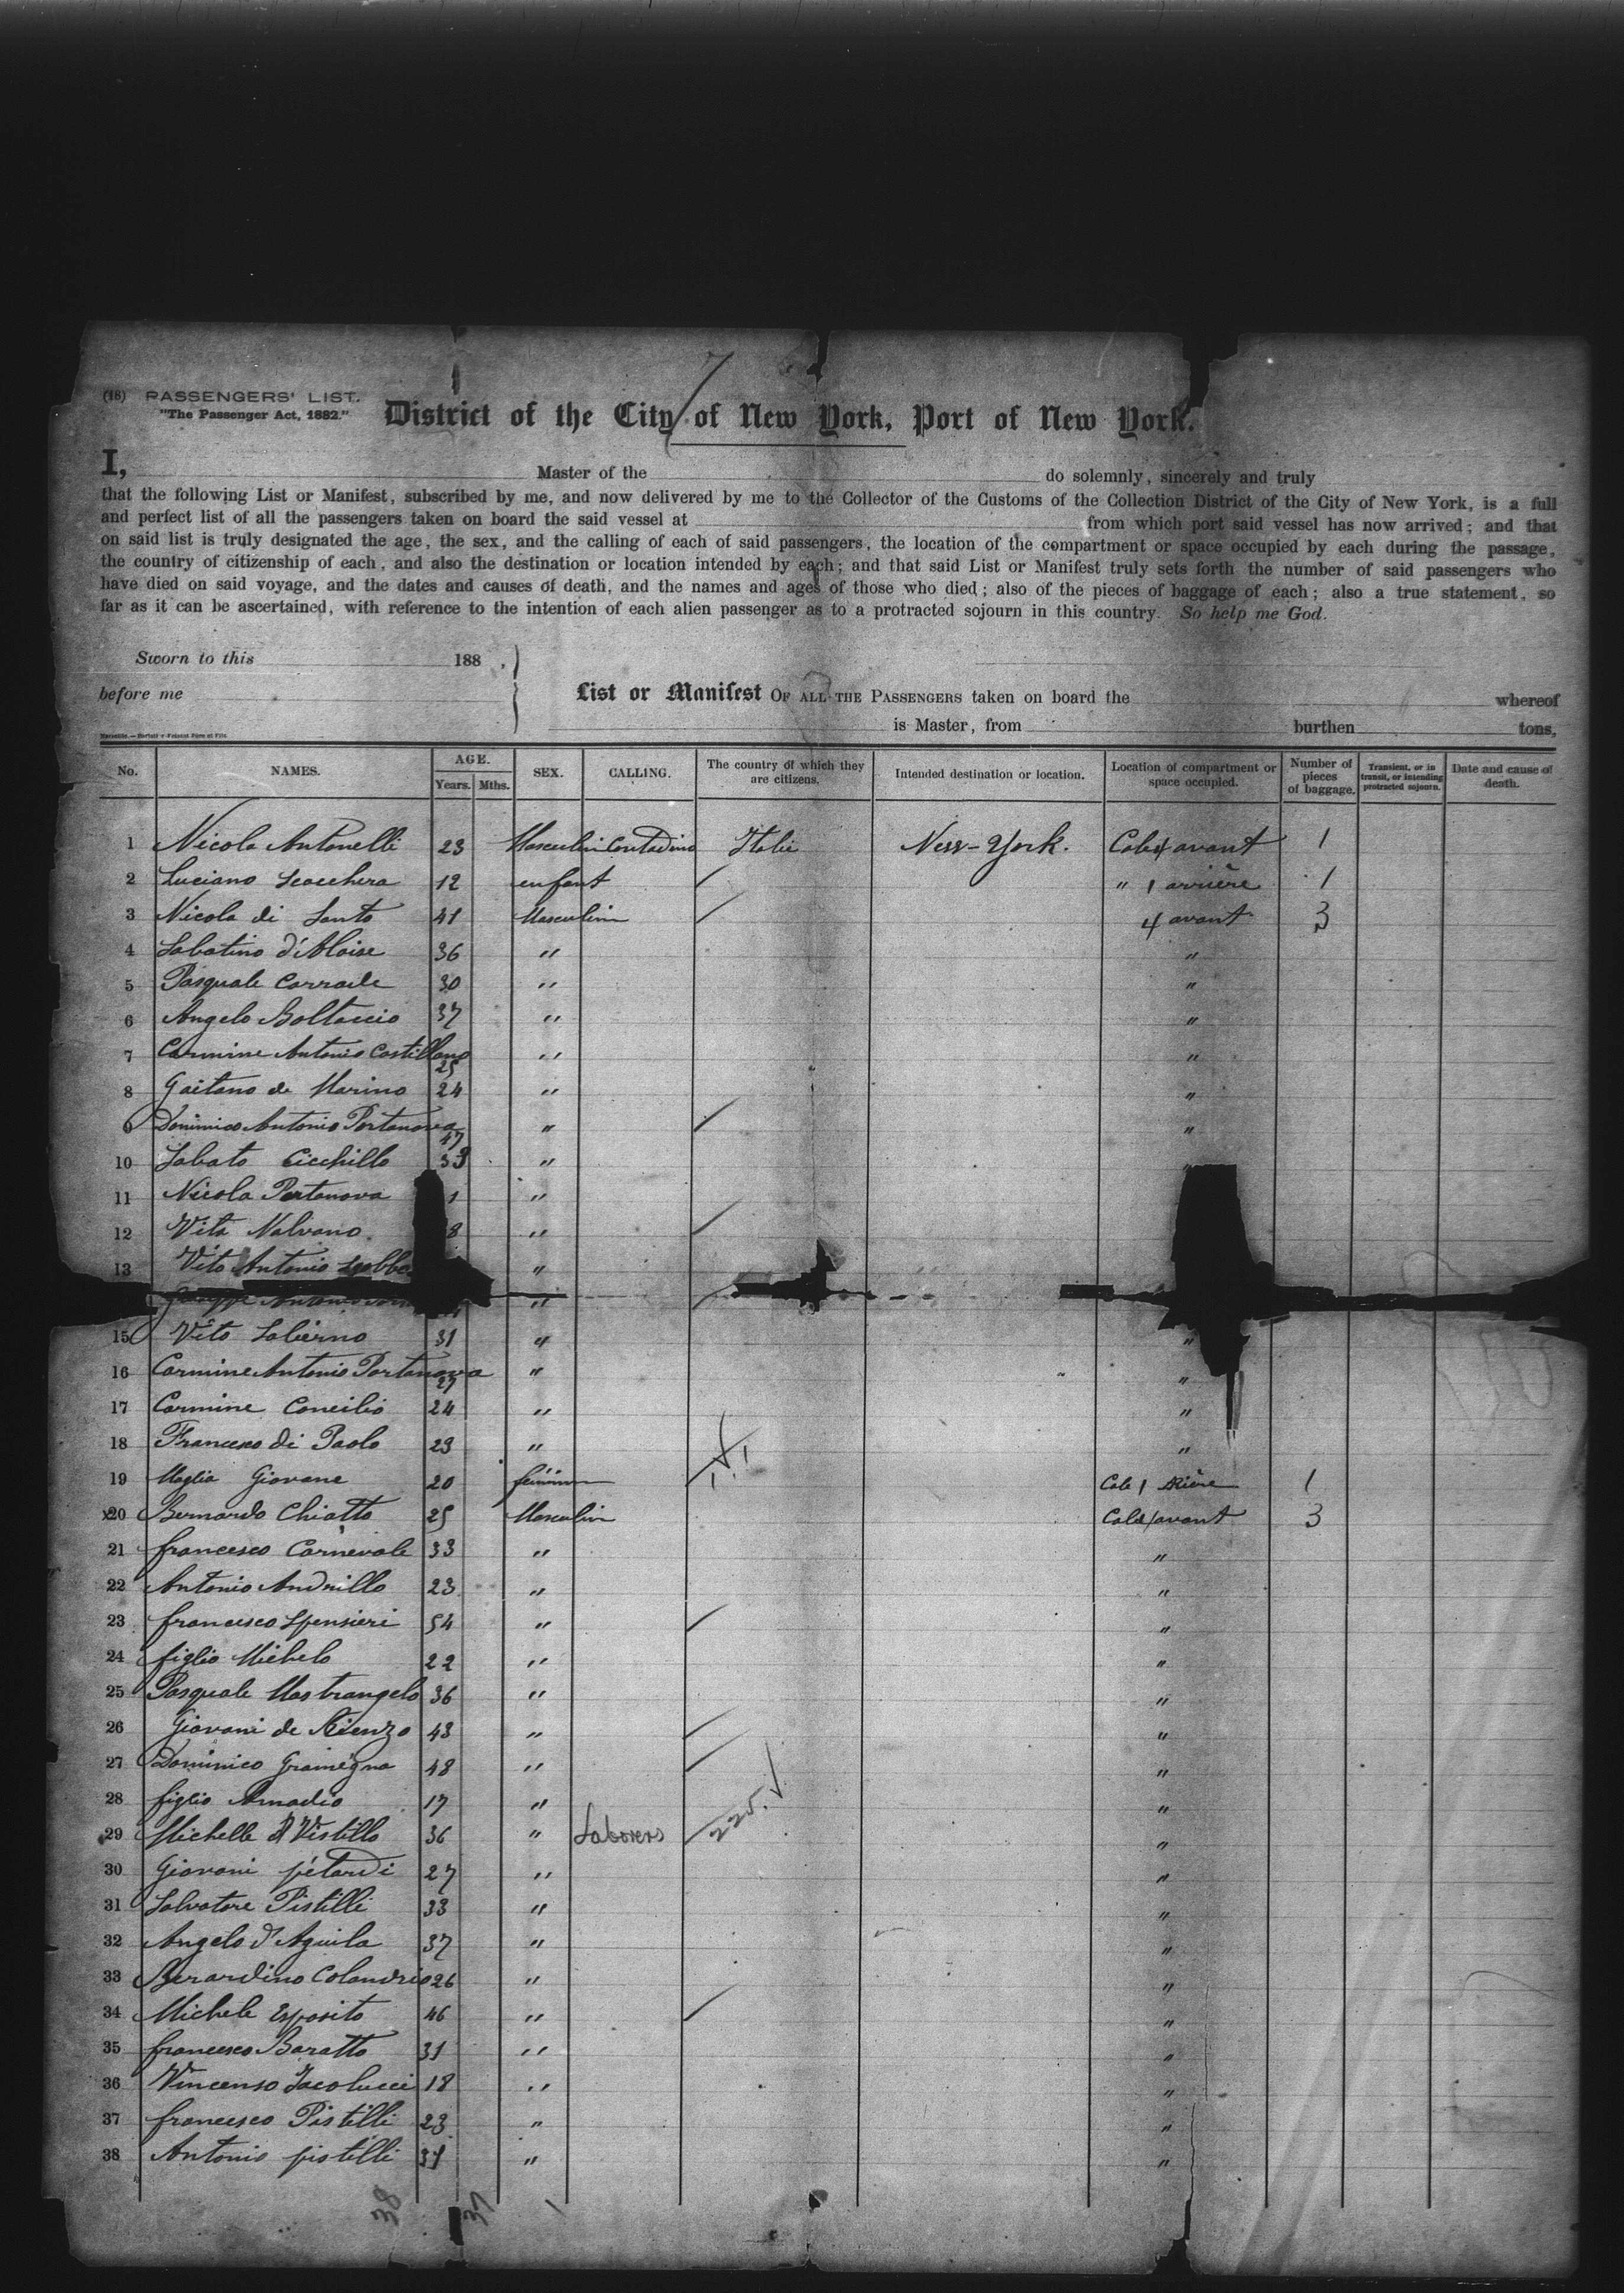 (18) PASSENGERS' LIST.
"The Passenger Act, 1882."
District of the City of New York, Port of New York.
I, Master of the do solemnly, sincerely and truly
that the following List or Manifest, subscribed by me, and now delivered by me to the Collector of the Customs of the Collection District of the City of New York, is a full
and perfect list of all the passengers taken on board the said vessel at from which port said vessel has now arrived; and that
on said list is truly designated the age, the sex, and the calling of each of said passengers, the location of the compartment or space occupied by each during the passage,
the country of citizenship of each, and also the destination or location intended by each; and that said List or Manifest truly sets forth the number of said passengers who
have died on said voyage, and the dates and causes of death, and the names and ages of those who died; also of the pieces of baggage of each; also a true statement, so
far as it can be ascertained, with reference to the intention of each alien passenger as to a protracted sojourn in this country. So help me God.
Sworn to this 188 ,
before me
List or Manifest OF ALL THE PASSENGERS taken on board the whereof
is Master, from burthen tons,
No. NAMES. AGE. Years. Mths. SEX. CALLING. The country of which they are citizens. Intended destination or location. Location of compartment or space occupied. Number of pieces of baggage. Transient, or in transit, or intending protracted sojourn. Date and cause of death.
1 Nicola Antonelli 23 Masculin Contadino Italie New-York. Cale 4 avant 1
2 Luciano Scacchera 12 enfant " 1 arrière 1
3 Nicola di Santo 41 Masculin 4 avant 3
4 Sabatino d'Aloise 36 " "
5 Pasquale Corrade 30 " "
6 Angelo Boltaccio 37 " "
7 Carmine Antonio Castillano 25 " "
8 Gaitano de Marino 24 " "
9 Dominico Antonio Portanova 47 " "
10 Sabato Cicchillo 33 " "
11 Nicola Portanova 1 "
12 Vita Nalvano. 8 "
13 Vito Antonio "
Antonio "
15 Vito Salierno 31 " "
16 Carmine Antonio Portanova 27 " "
17 Carmine Concilio 24 " "
18 Francesco di Paolo 29 " "
19 Maglia Giovane 20 féminin Cale 1 arière 1
x20 Bernardo Chiatto 25 Masculin Cale 4 avant 3
21 francesco Carnevale 33 " "
22 Antonio Andrillo 23 " "
23 francesco Spensieri 54 " "
24 figlio Michele 22 " "
25 Pasquale Mastrangelo 36 " "
26 Giovani de Rienzo 43 " "
27 Dominico Gramegna 48 " "
28 figlio Amadio 17 " "
29 Michelle Vistillo 36 " Laborers 225. "
30 Giovani pétardi 27 " "
31 Salvatore Pistilli 33 " "
32 Angelo d'Aquila 37 " "
33 Berardino Colandrio 26 " "
34 Michele Esposito 46 " "
35 francesco Baratto 31 " "
36 Vincenso Jacolucci 18 " "
37 francesco Pistilli 23 " "
38 Antonio pistilli 31 " "
38 37 1